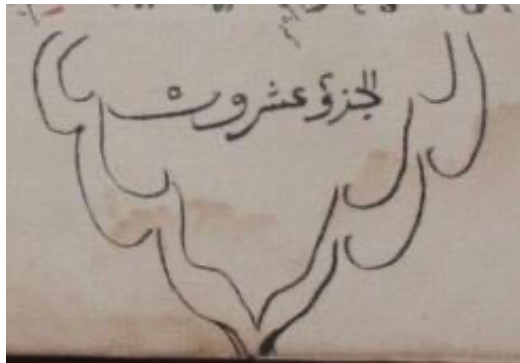 الجزؤ عشرون